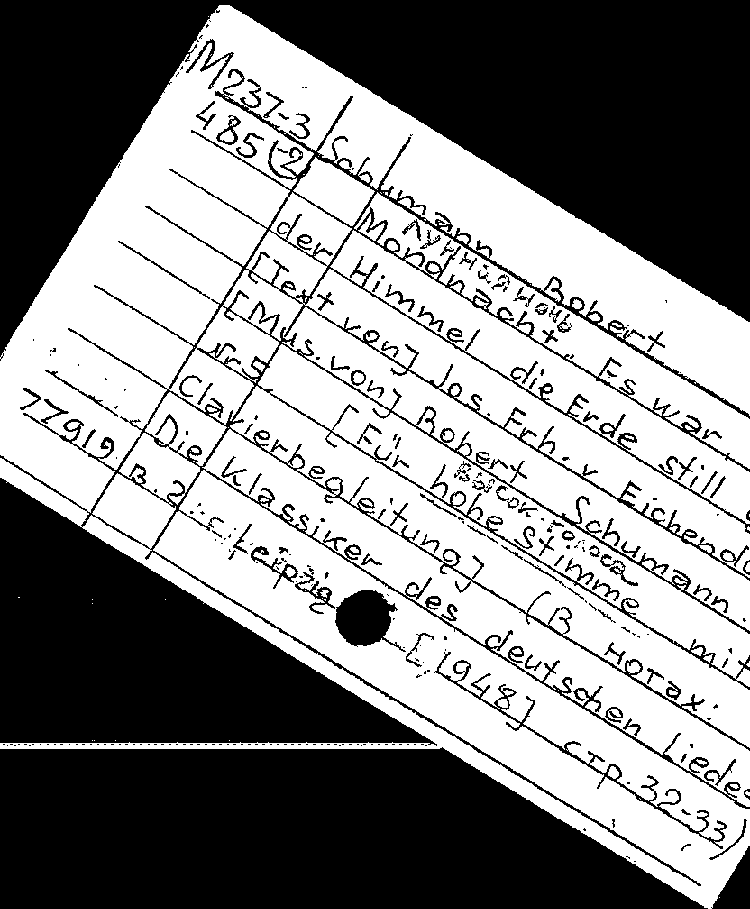 M237-3
485(2)
Schumann, Robert
Лунная ночь
Mondnacht. Es war,
der Himmel die Erde still
[Text von] Jos. Frh. v. Eichendo
[Mus. von] Robert Schumann.
Nr 5.
высок. голоса
[Für hohe Stimme mit
Clavierbegleitung] (В нотах:
Die Klassiker des deutschen Liedes
77919. B. 2. Leipzig [1948] стр. 32-33)